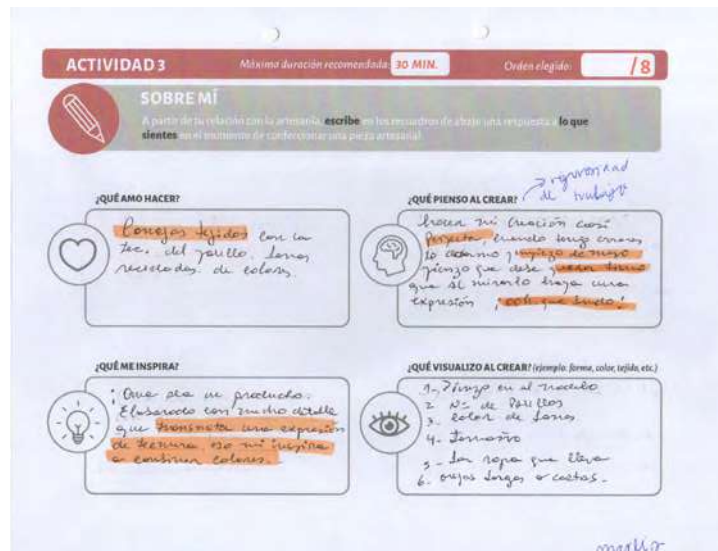 ACTIVIDAD 3
Máxima duración recomendada: 30 MIN.
Orden elegido: /8
SOBRE MÍ
A partir de tu relación con la artesanía, escribe en los recuadros de abajo una respuesta a lo que
sientes en el momento de confeccionar una pieza artesanal.
de trabajo
¿QUÉ AMO HACER?
Conejos tejidos con la
tec. del palillo. Lanas
recicladas de colores.
¿QUÉ PIENSO AL CREAR?
hacer mi creación casi
Perfecta, cuando tengo errores
lo desarmo y empiezo de nuevo
pienzo que debe quedar tierno
que al mirarlo haga una
expresión ¡ohh que lindo!
¿QUÉ ME INSPIRA?
¡Que sea un producto.
Elaborado con mucho detalle
que transmita una expresión
de ternura, eso mi inspira
a continuar colores.
¿QUÉ VISUALIZO AL CREAR? (ejemplo: forma, color, tejido, etc.)
1- Pienzo en el modelo
2 Nº de Palillos
3. color de Lanas
4- Tamaño
5- La ropa que lleva
6. orejas largas o cortas.